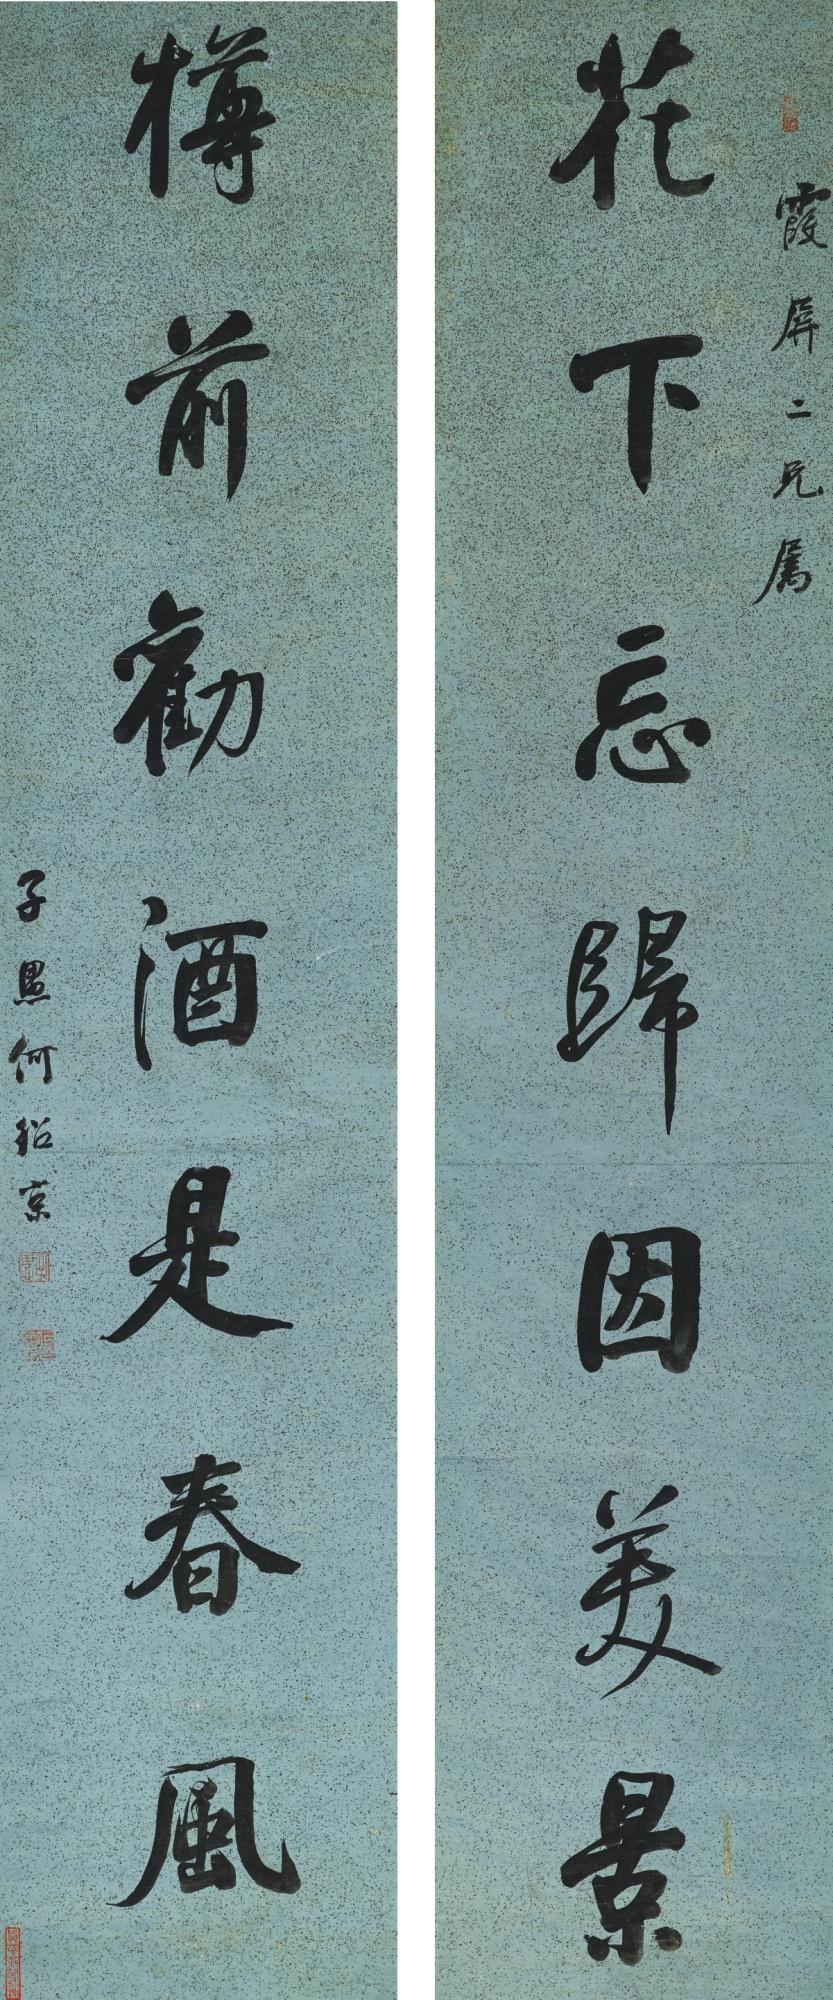 霞屏二兄屬
花下忘歸因美景
樽前勸酒是春風
子愚何紹京